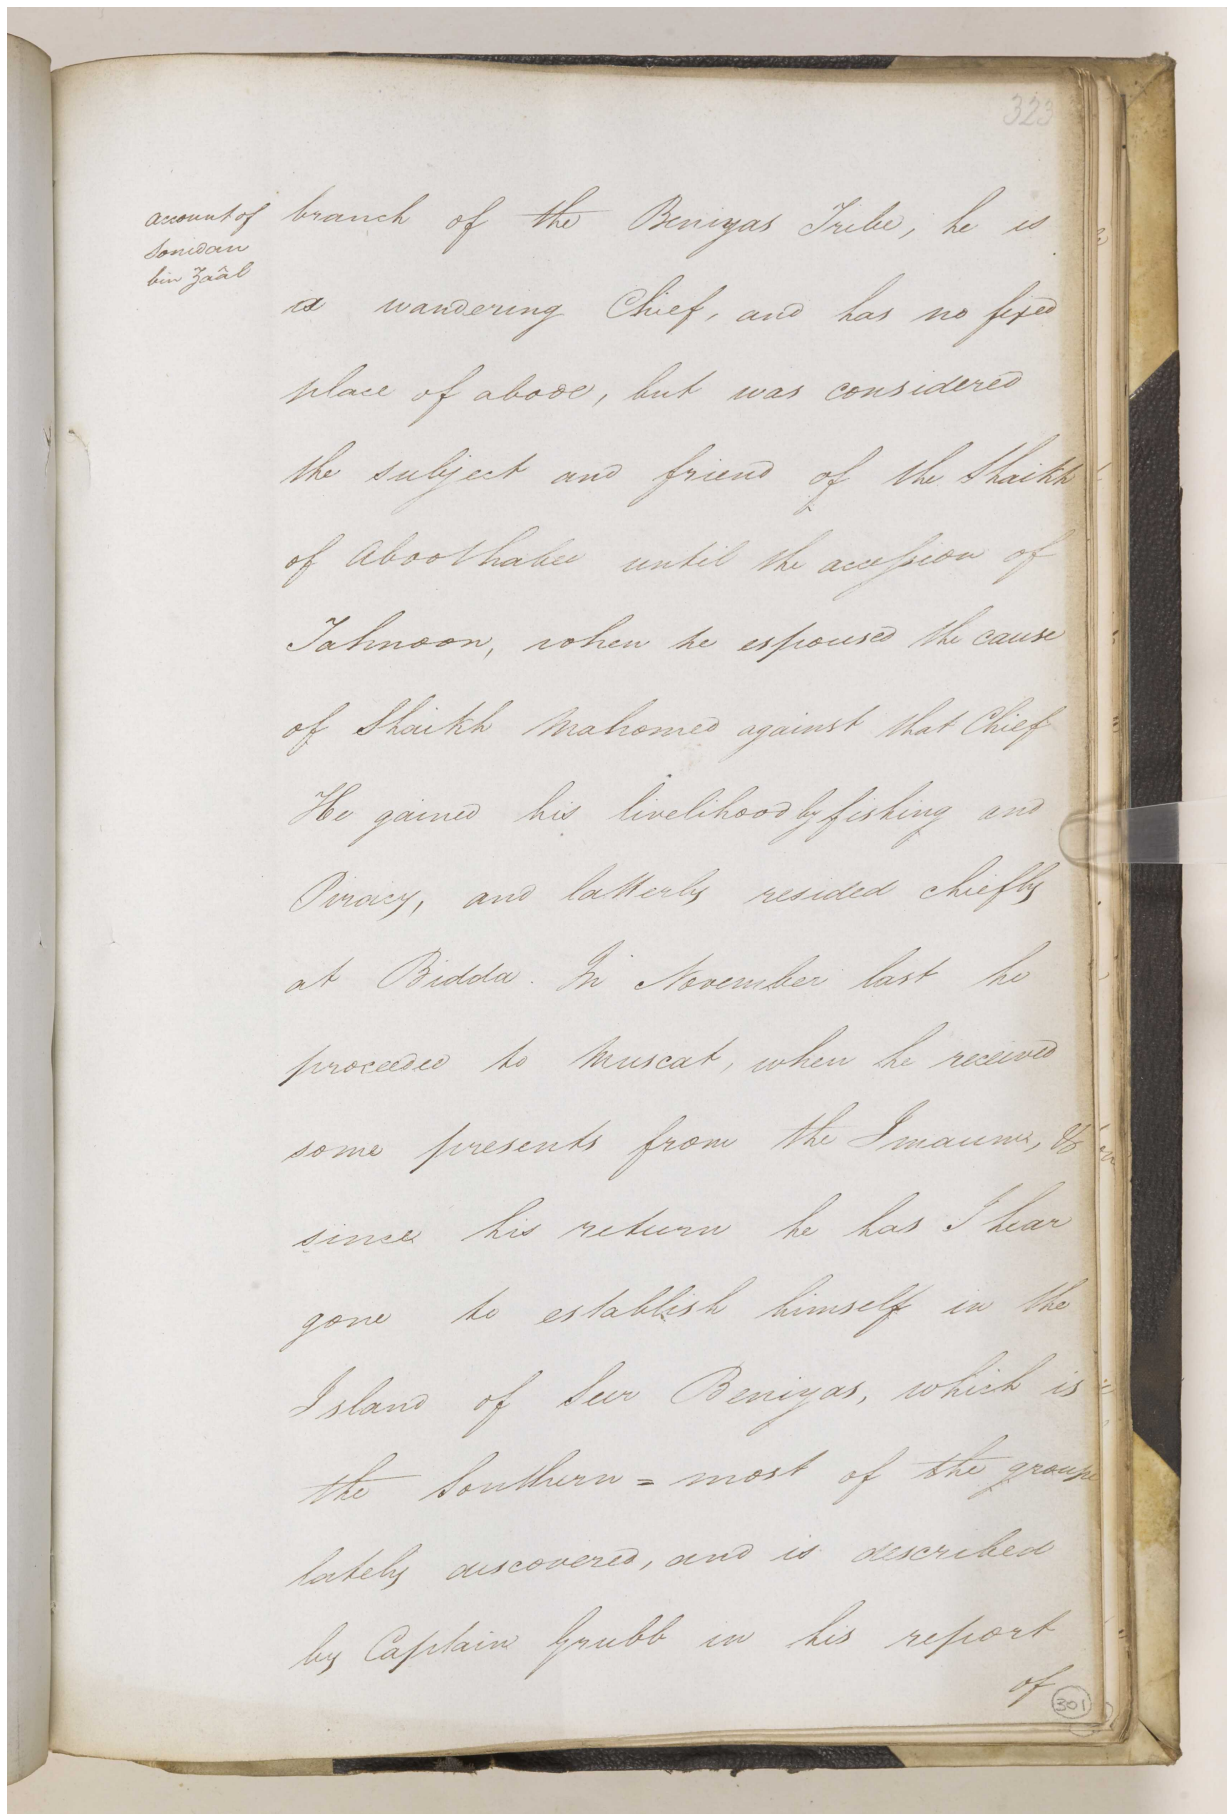 323
account of
Sonidan
bin Zaâl
branch of the Beniyas Tribe, he is
a wandering Chief, and has no fixed
place of abode, but was considered
the subject and friend of the Shaikh
of Aboothabee until the accession of
Tahnoon, when he espoused the cause
of Shaikh Mahomed against that Chief
He gained his livelihood by fishing and
Piracy, and latterly resided chiefly
at Bidda. In November last he
proceeded to Muscat, when he received
some presents from the Imaum, &
since his return he has I hear
gone to establish himself in the
Island of Seer Beniyas, which is
the Southern = most of the groupe
lately discovered, and is described
by Captain Grubb in his report
of
301